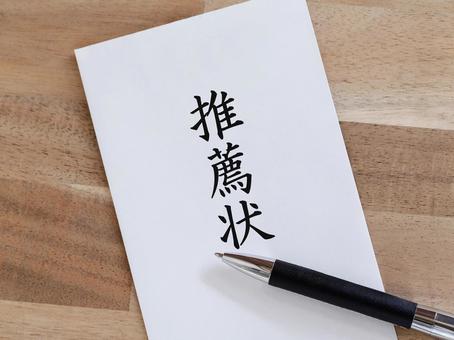 推薦状